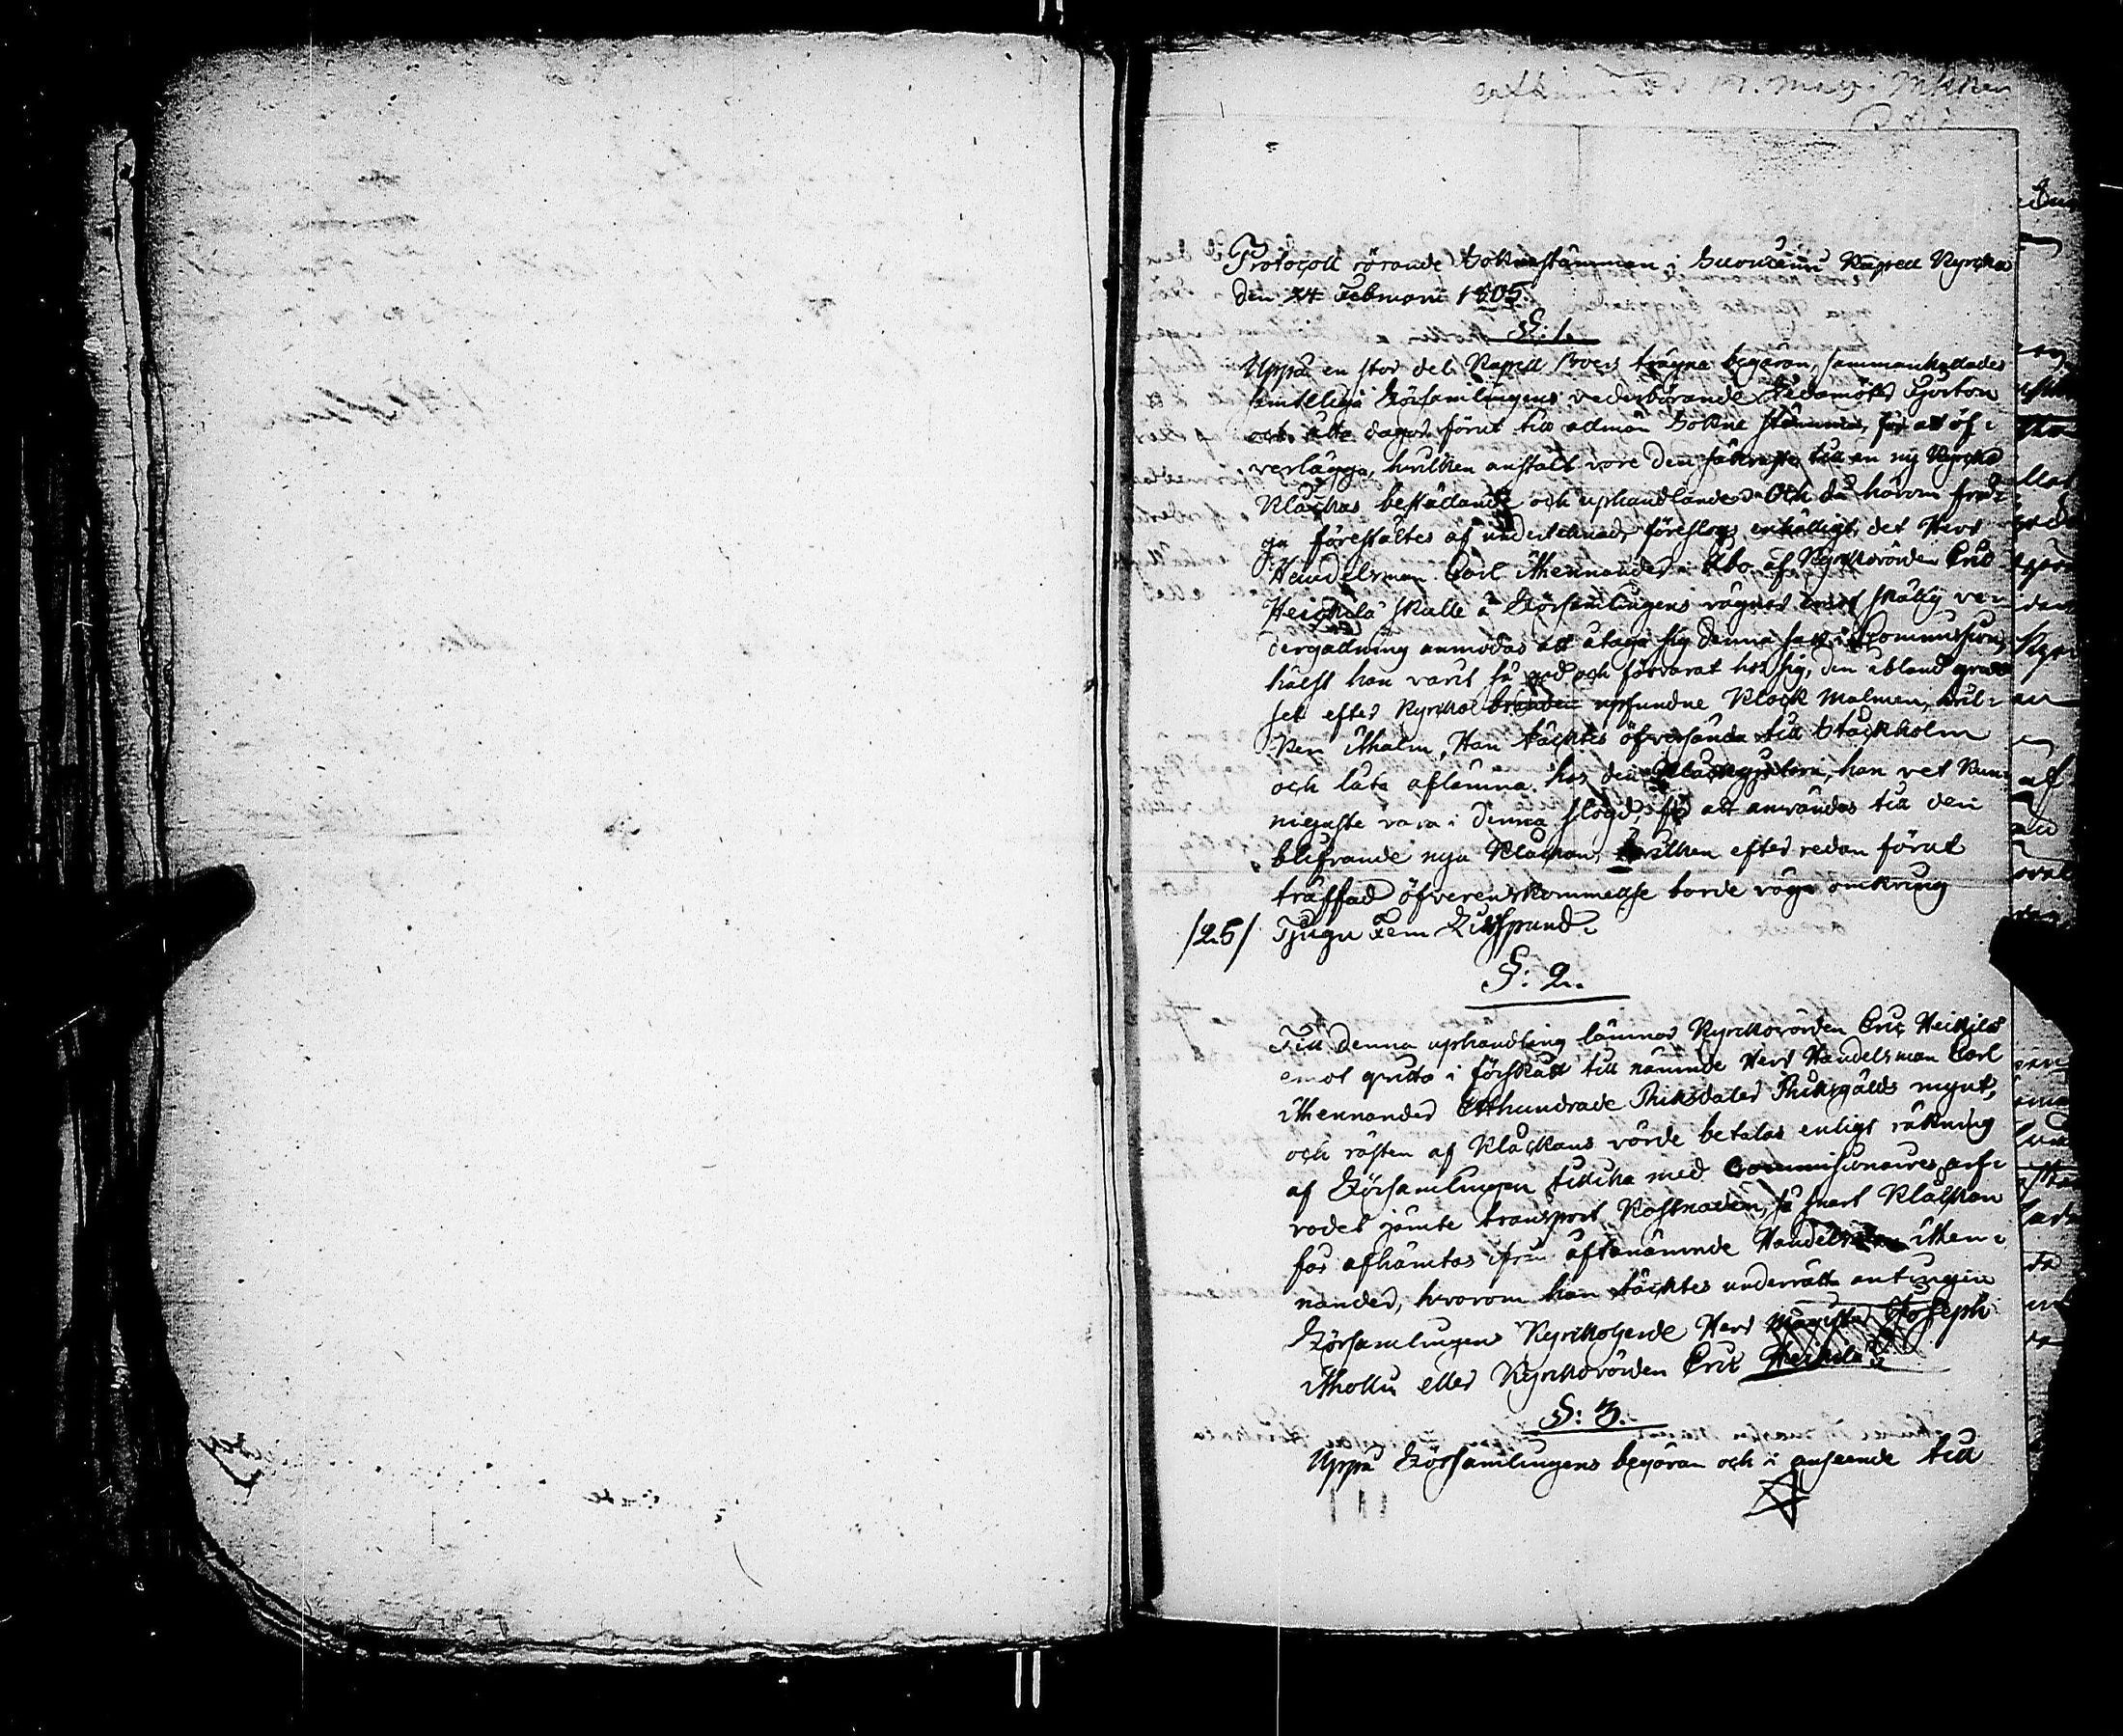 Protocoll rörande Soknestämman i Suoniemi Kapell Kyrcka
den 24 Februarii 1805.
§: 1.
Uppå en stor del Kapell Boers trägna begäran, sammankallades
samtelliga Församlingens vederbörande Ledamöter Fjorton
och åtta dagar förut till allmän Sokne stämma, för att öf-
verlägga, hvilken anstalt vore den säkraste till en ny Kyrcko
Klåckas beställande och uphandlande. Och då härom frå-
ga förestältes af undertecknad, föreslogs enhälligt, det Herr
Handelsman Carl Mennander i Åbo af Kyrkovärden Eric
Heickilä skulle å Församlingens vägnar emot skälig ve-
dergällning anmodas att åtaga sig denna sak i Commission,
hälst han varit så god och förvarat hos sig, den ibland gru-
set efter Kyrko branden upfundne Klock Malmen, hvil-
ken Malm, Han täcktes öfversända till Stockholm
och låta aflämna hos den Klåckgjutare, han vet kun-
nigaste vara i denna slögd, för att användas till den
blifvande nya Klåckan, hvilken efter redan förut
träffad öfverenskommelse borde väga omkring
/25/ Tjugu Fem Lisspund.
§: 2.
Till denna uphandling lämnar Kyrkovärden Eric Heikilä
emot qvitto i förskått till nämnde Herr Handelsman Carl
Mennander Etthundrade Riksdaler Riksgälds mynt,
och rästen af Klåckans värde betalas enligt räkning
af Församlingen tillika med Commissionaires arf-
vodet jämte transport Kostnaden, så snart Klåckan
får afhämtas ifrån oftanämnde Handelsman Men-
nander, hvarom han täcktes underrätta antingen
Församlingens Kyrkoherde Herr Magister Joseph
Mollin eller Kyrkovärden Eric Heikilä.
§: 3.
Uppå Församlingens begäran och i anseende till